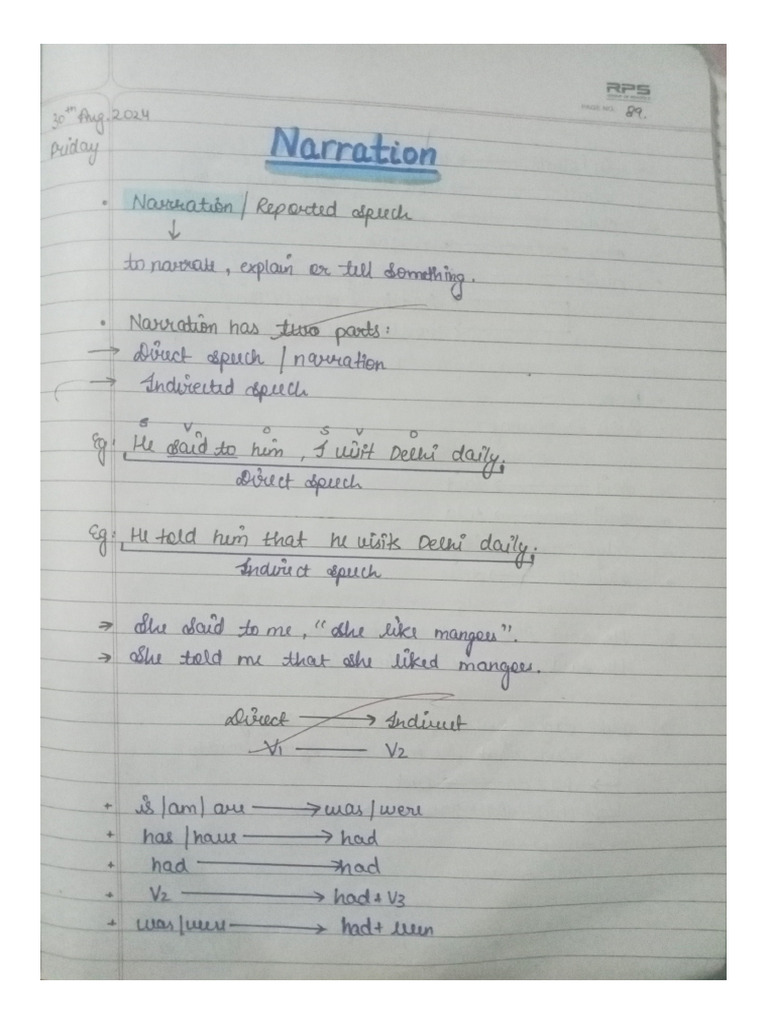 RPS
PAGE NO. 89.
30th Aug. 2024
Friday
Narration
• Narration / Reported speech
↓
to narrate, explain or tell something.
• Narration has two parts:
→ Direct speech / narration
→ Indirected speech
S V O S V O
Eg: He said to him, I visit Delhi daily.
Direct speech
Eg: He told him that he visits Delhi daily.
Indirect speech
→ She said to me, "She like mangoes".
→ She told me that she liked mangoes.
Direct → Indirect
V1 — V2
+ is/am/are → was/were
+ has/have → had
+ had → had
+ V2 → had + V3
+ was/were → had +